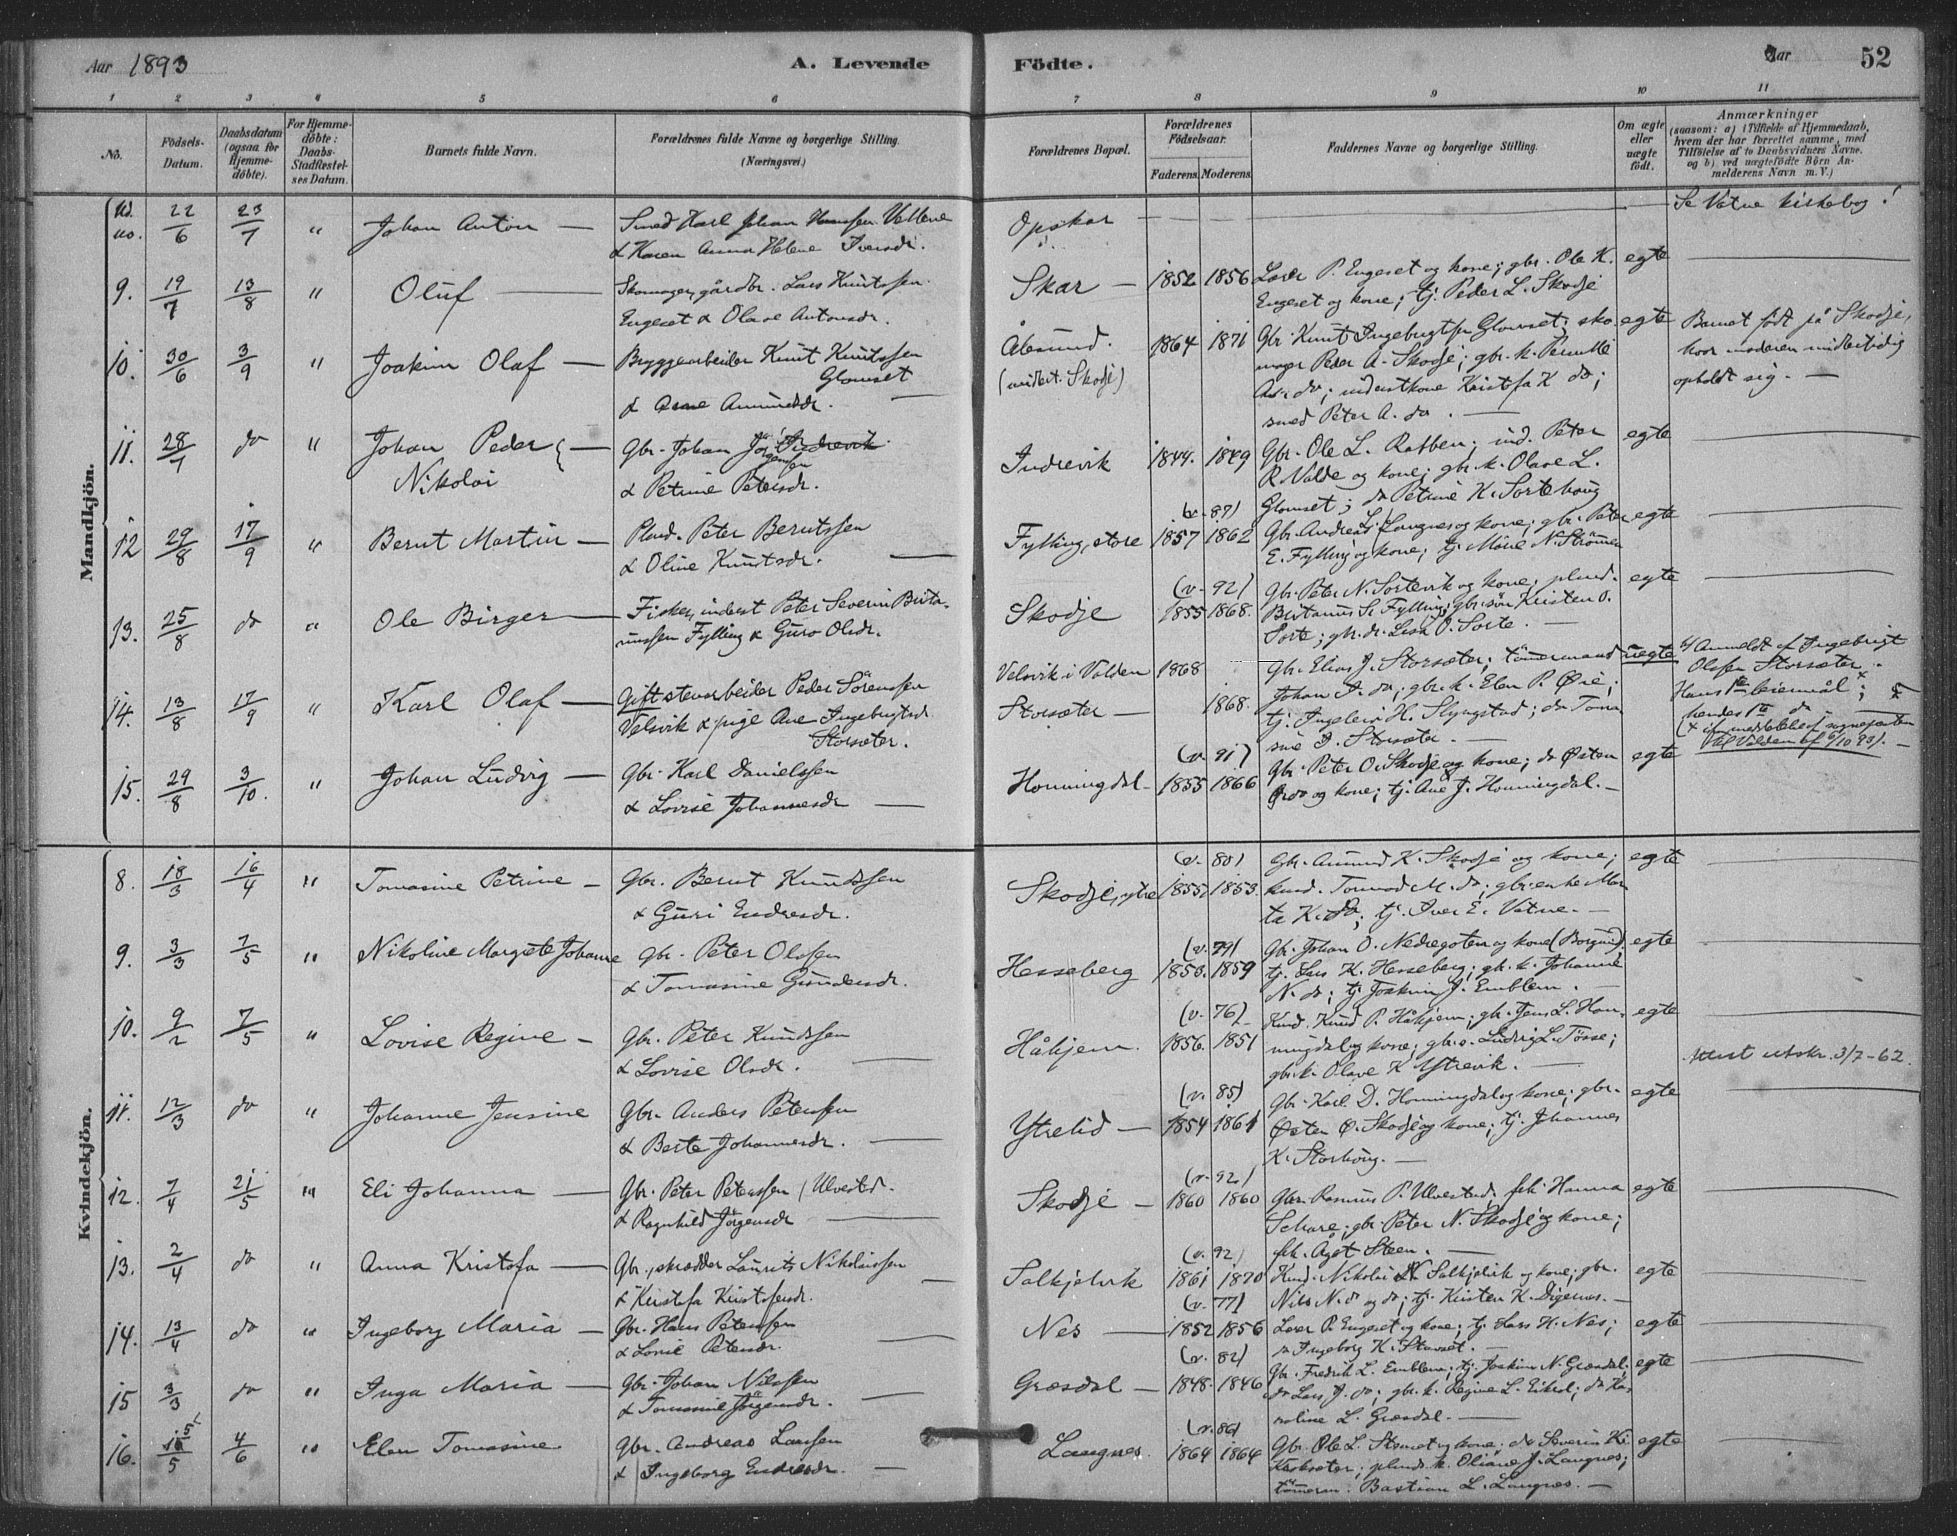 Aar 1893
A. Levende
Födte.
Aar
52
1 2 3 4 5 6 7 8 9 10 11
No.
Födsels-Datum.
Daabsdatum (ogsaa for Hjemme-döbte).
For Hjemme-döbte: Daabs-Stadfæstel-ses Datum.
Barnets fulde Navn.
Forældrenes fulde Navne og borgerlige Stilling. (Næringsvei.)
Forældrenes Bopæl.
Forældrenes Födselsaar.
Faderens. Moderens.
Faddernes Navne og borgerlige Stilling.
Om ægte eller uægte födt.
Anmærkninger
(saasom: a) i Tilfælde af Hjemmedaab, hvem der har forrettet samme, med Tilföielse af to Daabsvidners Navne. og b) ved uægtefödte Börn An-melderens Navn m. V.)
Mandkjön.
Ud. no. 22/6 23/7 " Johan Anton — Smed Karl Johan Hansen Vatne
& Karen Anna Helene Iversdr.
Opskar
Se Vatne kirkebog!
9. 19/7 13/8 " Oluf — Skomager, gårdbr. Lars Knutssen
Engeset & Olave Antonsdr.
Skar — 1852 1856 Laur P. Engeset og kone; gbr. Ole K.
Engeset og kone; tj. Peder L. Skodje
egte
10. 30/6 3/9 " Joakim Olaf — Bryggearbeider Knut Knutssen
Glomset
& Ane Amundsdr.
Ålesund. (midlert. Skodje) 1864 1871 Gbr. Knut Ingebrigtsn Glomset; sko-
mager Peder A. Skodje; gbr. k. Pernille
A. do; inderstkone Kristofa K do;
smed Peter A. do. —
egte
Barnet født på Skodje,
hvor moderen midlertidig
opholdt sig. —
11. 28/7 do " Johan Peder
Nikolai
Gbr. Johan Jörgensen Indrevik
& Petrine Petersdr.
Indrevik 1844. 1849 Gbr. Ole L. Ratben; ind. Peter
R. Valde og kone; gbr. k. Olave L.
Glomset; do Petrine K. Sortehoug
egte
12 29/8 17/9 " Bernt Martin — Plads. Peter Berntssen
& Oline Knutsdr.
Fylling, store (v. 87) 1857 1862 Gbr. Andreas L. Langnes og kone; gbr. Peter
E. Fylling og kone; tj. Möne N. Strömmen
egte
13. 25/8 do " Ole Birger — Fisker, inderst Peter Severin Brita-
nussen Fylling & Guro Olsdr.
Skodje (v. 92) 1855 1868. Gbr. Peter N. Sortevik og kone; plads.
Britanus S. Fylling; gbr. sön Kristen O.
Sorte; gbr. d. Lisa O. Sorte. —
egte
14. 13/8 17/9 " Karl Olaf — Gift stenarbeider Peder Sörenssen
Velsvik & pige Ane Ingebrigtsdr.
Storsæter.
Velsvik i Volden 1868
Storsæter — 1868.
Gbr. Elias J. Storsæter; tömermand
Johan A. do; gbr. k. Elen P. Öie;
tj. Ingeleiv H. Slyngstad; do Toma-
sine D. Storsæter. —
uegte
b) Anmeldt af Ingebrigt
Olssen Storsæter.
Hans 1ste leiermål x;
hendes 1ste do —
(x if. meddelelse af sognepresten
til Volden af 6/10 93). —
15. 29/8 3/10. " Johan Ludvig — Gbr. Karl Danielssen
& Lovise Johannesdr —
Honningdal (v. 91) 1855 1866 Gbr. Peter O. Skodje og kone; do Østen
Ø. do og kone; tj. Ane J. Honningdal. —
egte
Kvindekjön.
8. 18/3 16/4 " Tomasine Petrine — Gbr. Bernt Knudssen
& Guri Endresdr.
Skodje, ytre (v. 80) 1855 1853. Gbr. Amund K. Skodje og kone;
kund. Tormod M. do; gbr. enke Mar-
ta K. do; tj. Iver E. Vatne. —
egte
9. 3/3 7/5 " Nikoline Margrete Johanne gbr. Peter Olssen
& Tomasine Gundersdr.
Hesseberg (v. 79) 1850. 1859 Gbr. Johan O. Nedregoten og kone (Borgund)
tj. Lars K. Hesseberg; gbr. k. Johanne
N. do; tj. Joakim J. Emblem. —
egte
10. 9/2 7/5 " Lovise Regine — Gbr. Peter Knudssen
& Lovise Olsdr.
Håhjem. (v. 76) 1856. 1851 Kund. Knud P. Håhjem; gbr. Jens L. Hon-
ningdal og kone; gbr. s. Ludvig L. Tösse;
gbr. k. Olave K. Ytrevik. —
egte
Attest utskr. 3/7-62.
11. 12/3 do " Johanne Jensine Gbr. Anders Peterssen
& Berte Johannesdr. —
Ytrelid — (v. 85) 1854 1861 Gbr. Karl D. Honningdal og kone; gbr.
Østen Ø. Skodje og kone; tj. Johannes
K. Storhoug. —
egte
12. 7/4 21/5 " Eli Johanna — Gbr. Peter Peterssen Ulvestd.
& Ragnhild Jörgensdr —
Skodje — (v. 92) 1860 1860 Gbr. Rasmus P. Ulvestad; frk. Hanna
Schare; gbr. Peter N. Skodje og kone;
frk. Ågot Steen. —
egte
13. 2/4 do " Anna Kristofa — Gbr., skrædder Laurits Nikolaissen
& Kristofa Kristofersdr.
Solkjelvik (v. 92) 1861 1870 Kund. Nikolai N. Solkjelvik og kone; gbr.
Nils N. do og do; tj. Kristen K. Digernes. —
egte
14. 13/4 do " Ingeborg Maria — Gbr. Hans Peterssen
& Lovise Petersdr.
Nes — (v. 77) 1852 1856 Laur P. Engeset og kone; tj. Lars H. Nes;
do Ingeborg K. Stavset. —
egte
15 3/3 do " Inga Maria — Gbr. Johan Nilssen
& Tomasine Jörgensdr.
Græsdal — (v. 82) 1848. 1846 Gbr. Fredrik L. Emblem; tj. Joakim N. Græsdal;
do Lars J. do; gbr. k. Regine L. Eikrol; do Ka-
roline L. Græsdal. —
egte
16. 15/5 4/6 " Elen Tomasine Gbr. Andreas Larssen
& Ingeborg Endresdr. —
Langnes. (v. 86) 1864 1864 Gbr. Ole L. Stemet og kone; do Severin Ki
Kirksæter; plads. k. Oliane J. Langnes;
tömerm. Bastian L. Langnes. —
egte